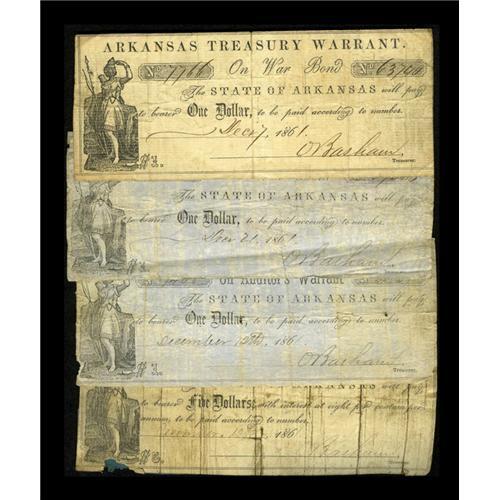 ARKANSAS TREASURY WARRANT.
No. 7766 On War Bond No.
The STATE OF ARKANSAS will pay
to bearer One Dollar, to be paid according to number.
Dec 7, 1861.
O Basham
Treasurer.
The STATE OF ARKANSAS will pay
to bearer One Dollar, to be paid according to number.
Dec 21, 1861.
On Auditor's Warrant
The STATE OF ARKANSAS will pay
to bearer One Dollar, to be paid according to number.
December 1861
O Basham
Treasurer.
to bearer Five Dollars, with interest at eight per cent per
annum, to be paid according to number.
186
Basham